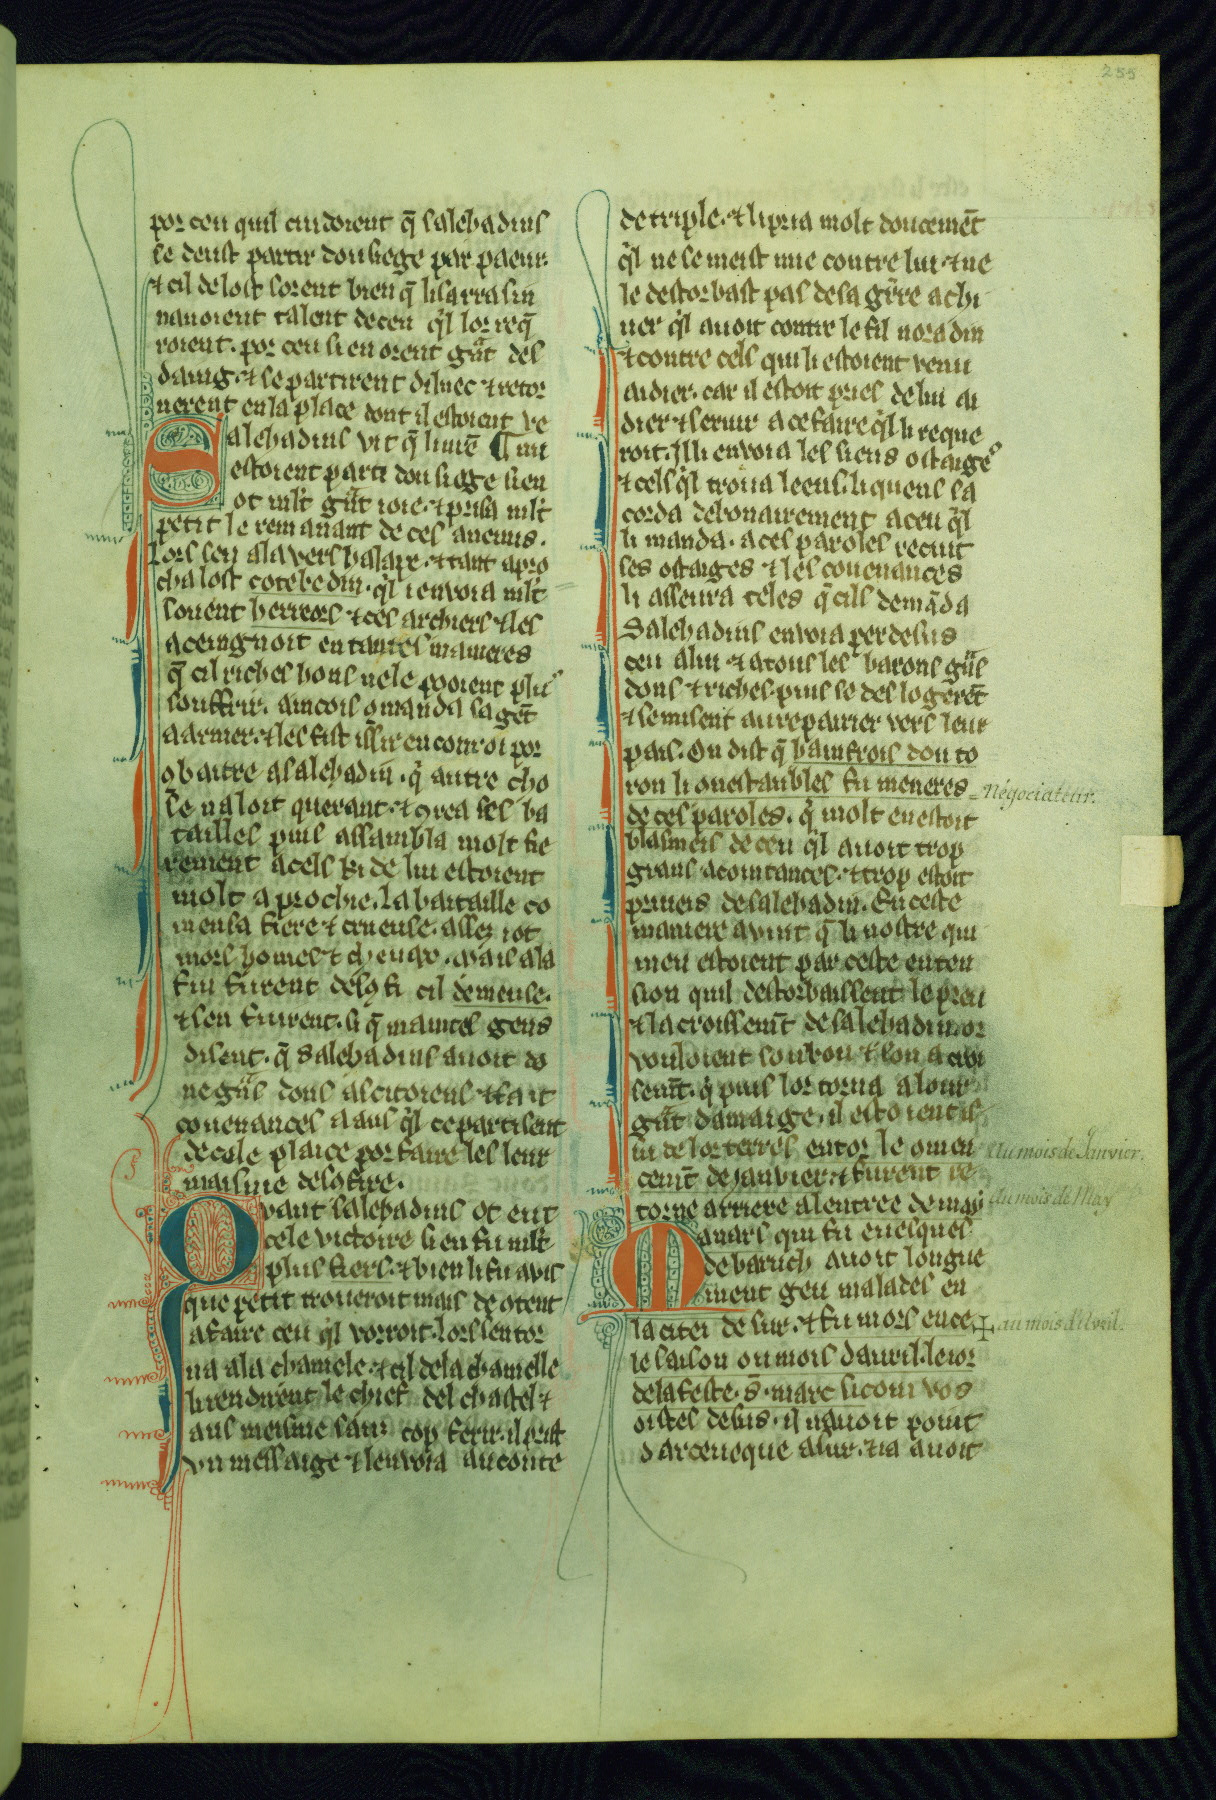 255
por ceu quil cuidoient q̃ salehadins
se deust partir dou siege par paeur.
⁊ cil de lost sorent bien q̃ li sarrasin
navoient talent de ceu q̃l lor req̃
roient. por ceu si en orent gr̃t des
daing. ⁊ se partirent diluec ⁊ retor
nerent en la place dont il estoient ve
Salehadins vit q̃ li nr̃e ¶ nu
estoient parti dou siege si en
ot ml̃t gr̃t ioie. ⁊ prisa ml̃t
petit le remanant de ces anemis.
Lors sen ala vers halape. ⁊ tant apro
cha lost cotebedin. q̃l i envoia ml̃t
sovent herreors ⁊ ces archiers ⁊ les
aceingnoit en tantes manieres
q̃ cil riches hons ne le pooient plus
souffrir. aincois omanda sa gẽt
a armer. ⁊ les fist issir en conroi por
obaitre a salehadin. q̃ autre cho
se naloit querant. ⁊ ꝯrea ses ba
tailles puis assambla molt fie
rement a cels ki de lui estoient
molt aprochie. La bataille co
mensa fiere ⁊ crueuse. assez i ot
mors homes ⁊ chevax. mais a la
fin furent descõfi cil demeuse.
⁊ sen fuirent. si q̃ maintes gens
disent. q̃ salehadins avoit do
ne gr̃s dons as citoiens ⁊ fait
covenances a aus q̃l ce partisent
de cele plaice por faire les leur
maisme desconfire.
Qvant salehadins ot eut
cele victoire si en fu ml̃t
plus fiers. ⁊ bien li fu avis
que petit troveroit mais de otent
a faire ceu q̃l vorroit. lors sentor
na a la chamele. ⁊ cil de la chamelle
li rendirent le chief del chastel ⁊
aus meisme sanz cop ferir. il prist
un messaige ⁊ lenvoia au conte
de triple. ⁊ li pria molt doucemẽt
q̃l ne se meist mie contre lui. ⁊ ne
le destorbast pas de sa gr̃re achi
ver q̃l avoit contre le fil noradin
⁊ contre cels qui li estoient venu
aidier. car il estoit pries de lui ai
dier ⁊ servir a ce faire q̃l li reque
roit. Il li envoia les siens ostaiges
⁊ cels q̃l trova leens. li quens sa
corda debonairement a ceu q̃l
li manda. a ces paroles recuit
ses ostaiges ⁊ les covenances
li asseura teles q̃ cils demãda
Salehadins envoia per desus
ceu a lui ⁊ a tous les barons gr̃s
dons ⁊ riches. puis se deslogerẽt
⁊ se misent au repairier vers leur
pais. On dist q̃ hainfrois dou to
ron li onestaubles fu meneres
de ces paroles. q̃ molt en estoit
blasmeis de ceu q̃l avoit trop
grans acointances. ⁊ trop estoit
priveis de salehadin. En ceste
maniere avint q̃ li nostre qui
meu estoient par ceste enten
sion quil destorbaissent le preu
⁊ lacroissemt̃ de salehadin. or
vouloient son bon ⁊ son acroi
semt̃. q̃ puis lor torna a lour
gr̃t damaige. il estoient is
su de lor terres entor le omen
cemt̃ de janvier. ⁊ furent re
torne arriere a lentree de may
Mauris qui fu evesques
de baruch avoit longue
ment geu malades en
la citei de sur. ⁊ fu mors en ce
te saison ou mois davril. le ior
de la feste. s̃. marc si com vos
oistes desus. il navoit point
darceveque a sur. ⁊ ia avoit
négociateur.
au mois de Janvier.
au mois de May
au mois d'Avril.